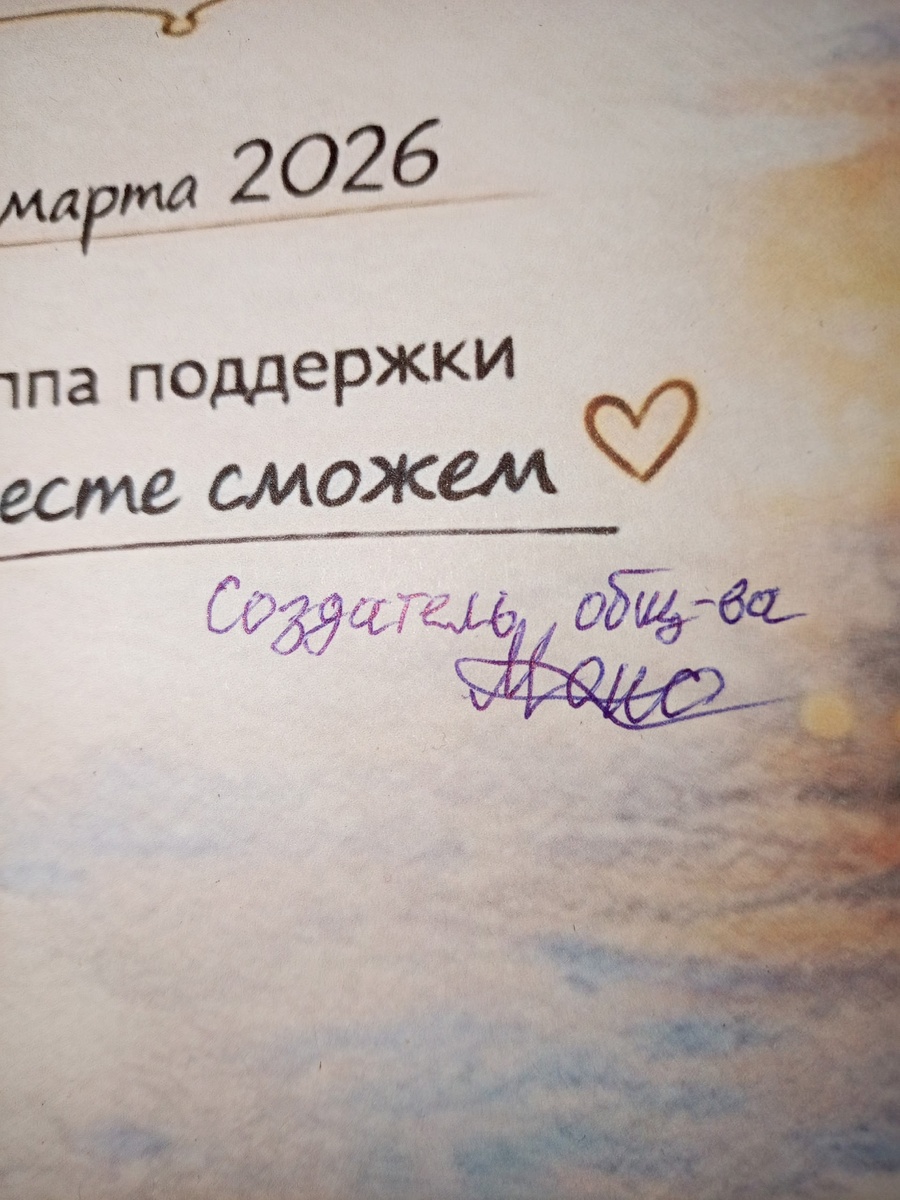 марта 2026
ппа поддержки
есте сможем
Создатель общ-ва